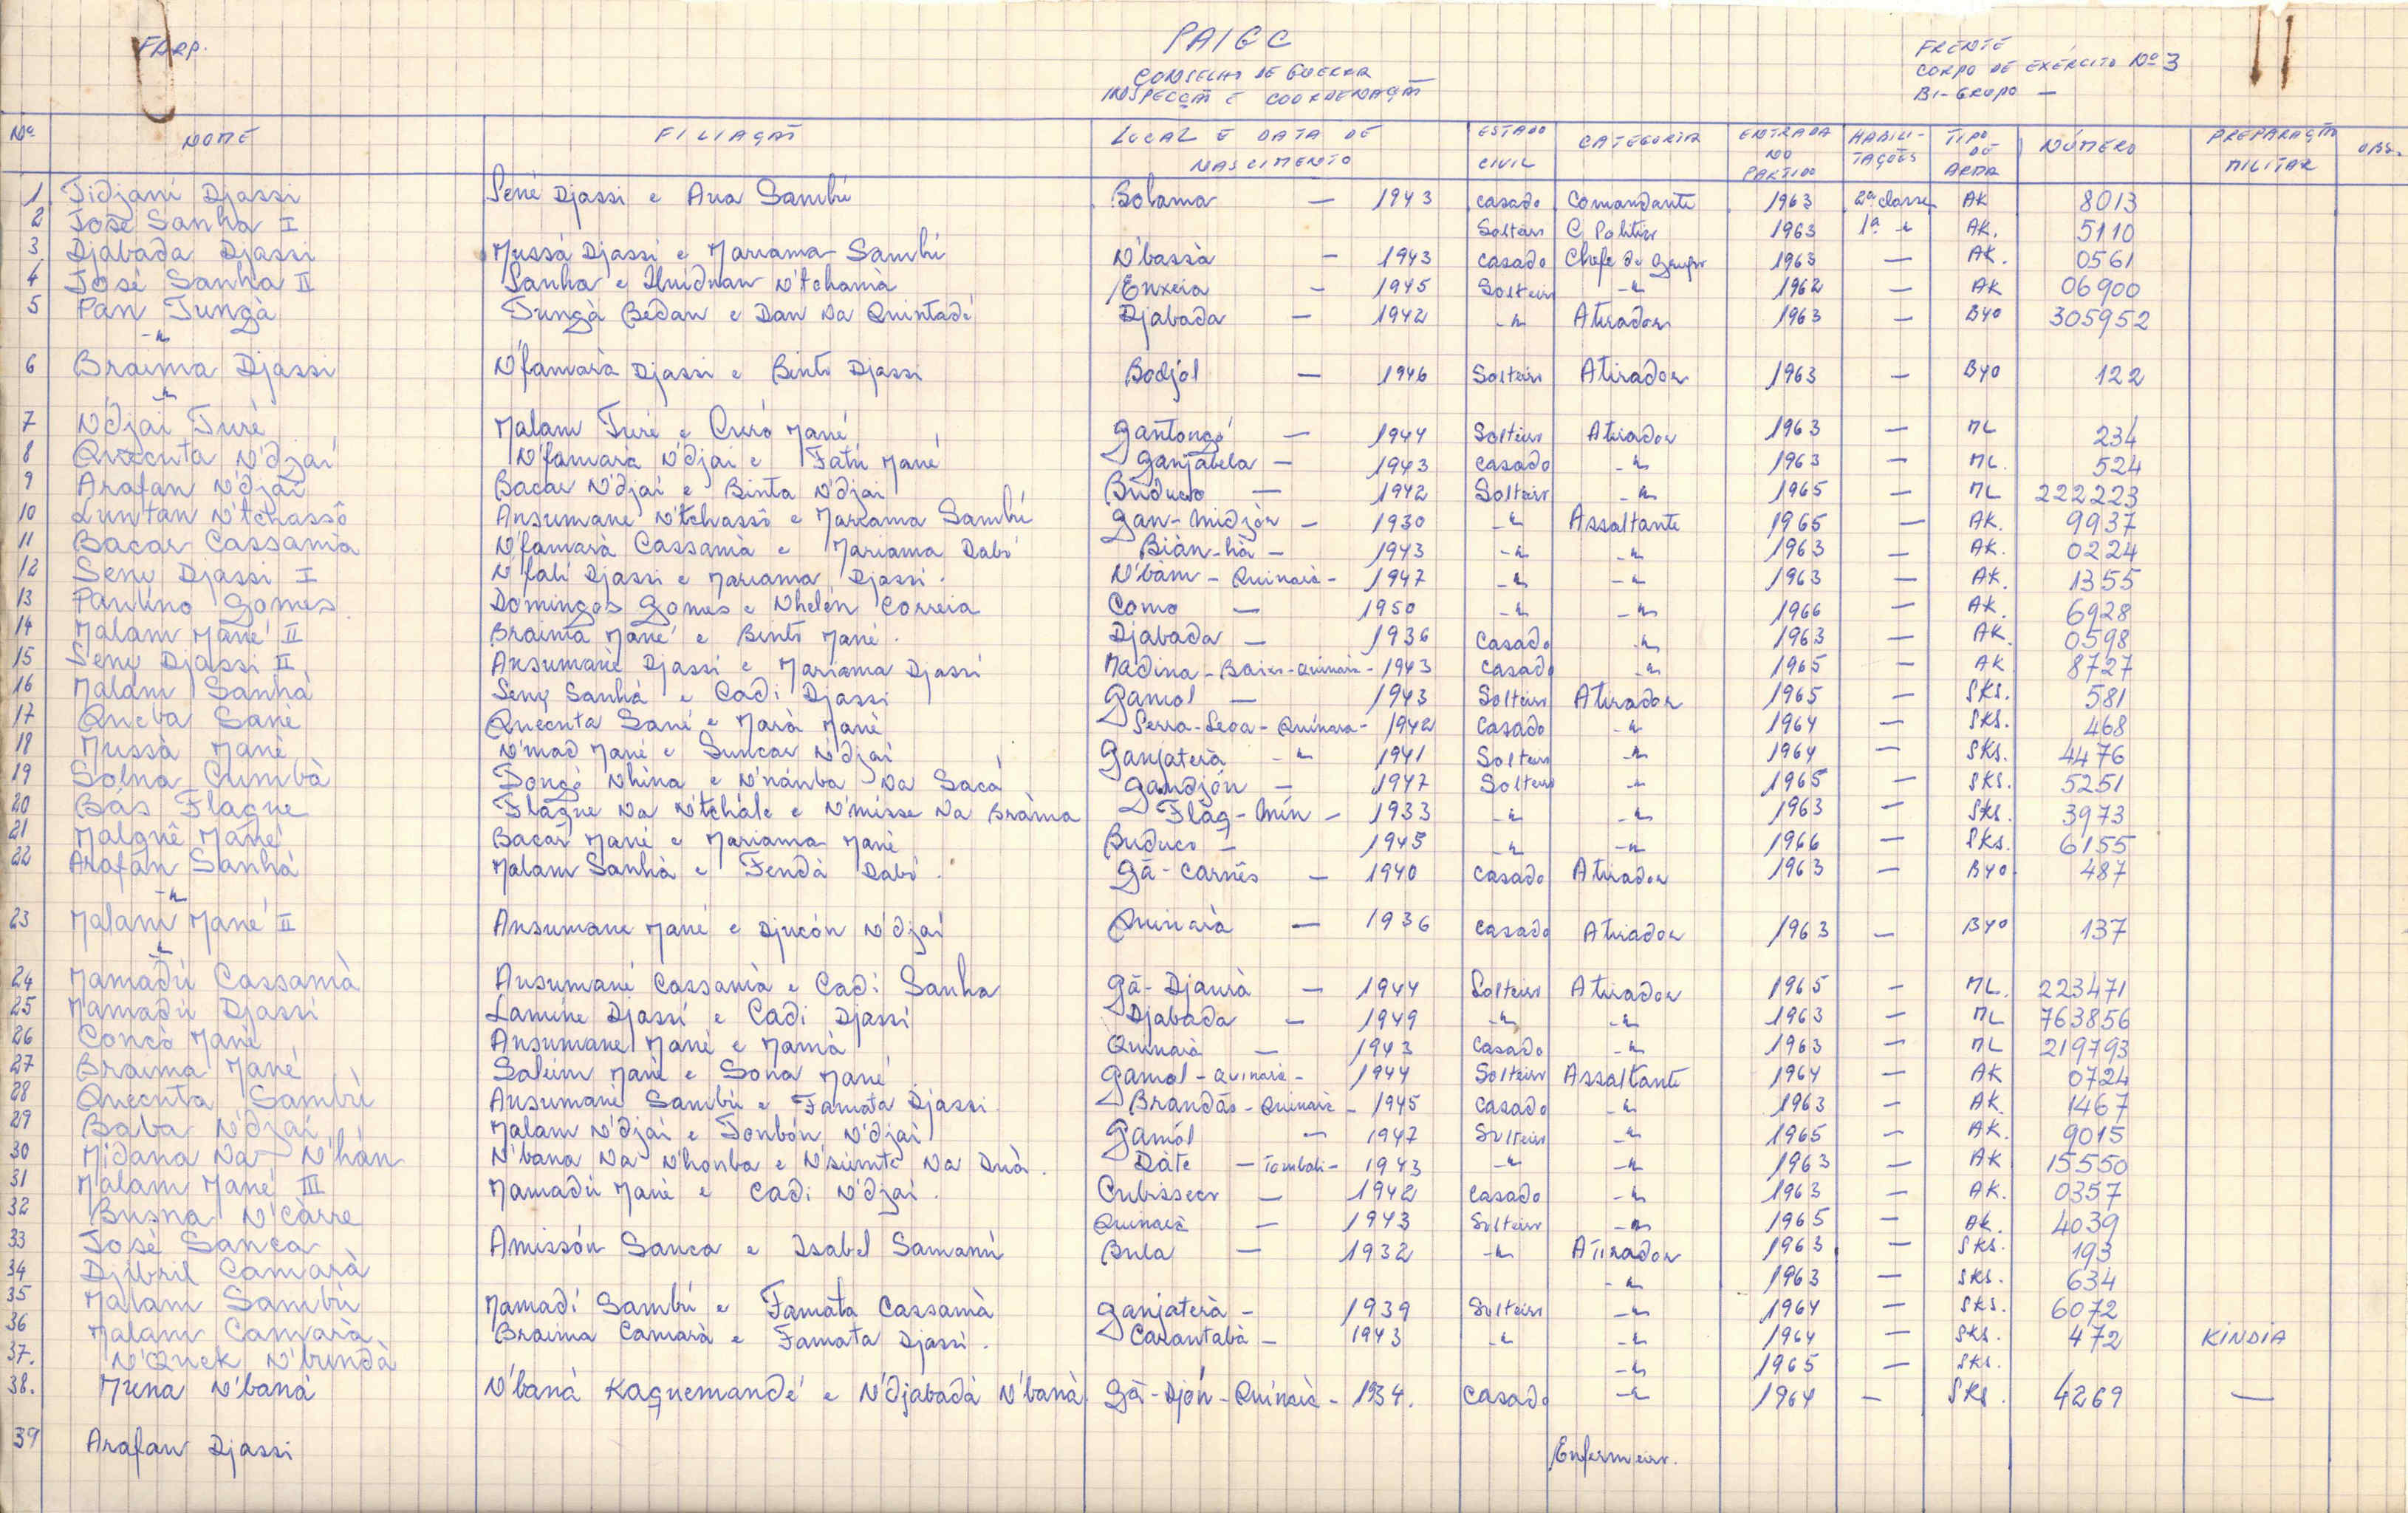 FARP.
PAIGC
CONSELHO DE GUERRA
INSPECÇÃO E COORDENAÇÃO
FRENTE
CORPO DE EXÉRCITO Nº 3
BI-GRUPO —
Nº NOME FILIAÇÃO LOCAL E DATA DE NASCIMENTO ESTADO CIVIL CATEGORIA ENTRADA NO PARTIDO HABILI-TAÇÕES TIPO DE ARMA NÚMERO PREPARAÇÃO MILITAR OBS.
1 Tidjani Djassi Sené Djassi e Ana Sambú Bolama — 1943 casado Comandante 1963 2ª classe AK 8013
2 José Sanha I Solteiro C. Político 1963 1ª " AK. 5110
3 Djabada Djassi Mussá Djassi e Mariama Sambú N'bassà — 1943 casado Chefe de grupo 1963 — AK. 0561
4 José Sanha II Sanha e N'tchamà Enxeia — 1945 Solteiro -"- 1962 — AK 06900
5 Pan Tungà Tungà Bedan e Dan Na Quintadé Djabada — 1942 -"- Atirador 1963 — Byo 305952
-"-
6 Braima Djassi N'famarà Djassi e Binto Djassi Bodjol — 1946 Solteiro Atirador 1963 — Byo 122
-"-
7 N'djai Turé Malam Turé e Mané Gantongó — 1944 Solteiro Atirador 1963 — ML 234
8 Quecuta N'djai N'famarà N'djai e Fatú Mané Ganjabela — 1943 casado -"- 1963 — ML. 524
9 Arafan N'djai Bacar N'djai e Binta N'djai Buduco — 1942 Solteiro -"- 1965 — ML 222223
10 Luntan N'tchassô Ansumane N'tchassô e Mariama Sambú Gan-Midjòr — 1930 -"- Assaltante 1965 — AK. 9937
11 Bacar Cassamà N'famarà Cassamà e Mariama Dabó Biàn-hà — 1943 -"- -"- 1963 — AK. 0224
12 Senu Djassi I N'fali Djassi e Mariama Djassi. N'bàm - Quinarà - 1947 -"- -"- 1963 — AK. 1355
13 Paulino Gomes Domingos Gomes e Nhelén Correia Como — 1950 -"- -"- 1966 — AK. 6928
14 Malam Mané II Braima Mané e Binto Mané. Djabada — 1936 casado -"- 1963 — AK. 0598
15 Senu Djassi II Ansumane Djassi e Mariama Djassi Madina - Baixo - Quinara - 1943 casado -"- 1965 — AK 8727
16 Malam Sanhá Senu Sanhá e Cadi Djassi Gamol — 1943 Solteiro Atirador 1965 — SKS. 581
17 Queba Sané Quecuta Sané e Marà Mané Serra-Leoa - Quinara - 1942 casado -"- 1964 — SKS. 468
18 Mussà Mané N'mad Mané e Suncar N'djai Ganjaterà -"- 1941 Solteiro -"- 1964 — SKS. 4476
19 Solna Cumbà Tongó Nhina e N'nánba Na Sacá Gandjón — 1947 Solteiro -"- 1965 — SKS. 5251
20 Bás Flague Flague Na N'tchále e N'misse Na Bràma Flág-Mín - 1933 -"- -"- 1963 — SKS. 3973
21 Malguê Mané Bacar Mané e Mariama Mané Buduco — 1945 -"- -"- 1966 — SKS. 6155
22 Arafan Sanhá Malam Sanhá e Fendà Dabó. Gã-Carnês — 1940 casado Atirador 1963 — Byo 487
-"-
23 Malam Mané II Ansumane Mané e Djucón N'djai Quinarà — 1936 casado Atirador 1963 — Byo 137
-"-
24 Mamadú Cassamà Ansumané Cassamà e Cadi Sanha Gã-Djaurà — 1944 Solteiro Atirador 1965 — ML. 223471
25 Mamadú Djassi Lamine Djassi e Cadi Djassi Djabada — 1949 -"- -"- 1963 — ML 763856
26 Concò Mané Ansumane Mané e Mamà Quinarà — 1943 casado -"- 1963 — ML 219793
27 Braima Mané Saleim Mané e Sona Mané Gamol - Quinarà - 1944 Solteiro Assaltante 1964 — AK 0724
28 Quecuta Sambú Ansumané Sambú e Famata Djassi. Brandão - Quinarà - 1945 casado -"- 1963 — AK. 1467
29 Baba N'djai Malam N'djai e Tonbón N'djai Gamól — 1947 Solteiro -"- 1965 — AK. 9015
30 Midana Na N'hán N'bana Na N'honba e N'siunte Na Duà. Dáte - Tombali - 1943 -"- -"- 1963 — AK 15550
31 Malam Mané III Mamadú Mané e Cadi N'djai. Cubisseco — 1942 casado -"- 1963 — AK. 0357
32 Busna N'càrre Quinarà — 1943 Solteiro -"- 1965 — AK. 4039
33 José Sanca Amissón Sanca e Isabel Samanú Bula — 1932 -"- Atirador 1963 — SKS. 193
34 Djibril Camarà -"- 1963 — SKS. 634
35 Malam Sambú Mamadi Sambú e Famata Cassamà Ganjaterà — 1939 Solteiro -"- 1964 — SKS. 6072
36 Malam Camarà Braima Camarà e Famata Djassi. Carantabà — 1943 -"- -"- 1964 — SKS. 472 KINDIA
37. N'Quek N'bundà -"- 1965 — SKS.
38. Muna N'baná N'baná Kaguemandé e N'djabadà N'banà. Gã-Djón - Quinarà - 1934. casado -"- 1964 — SKS. 4269 —
39 Arafan Djassi Enfermeiro.